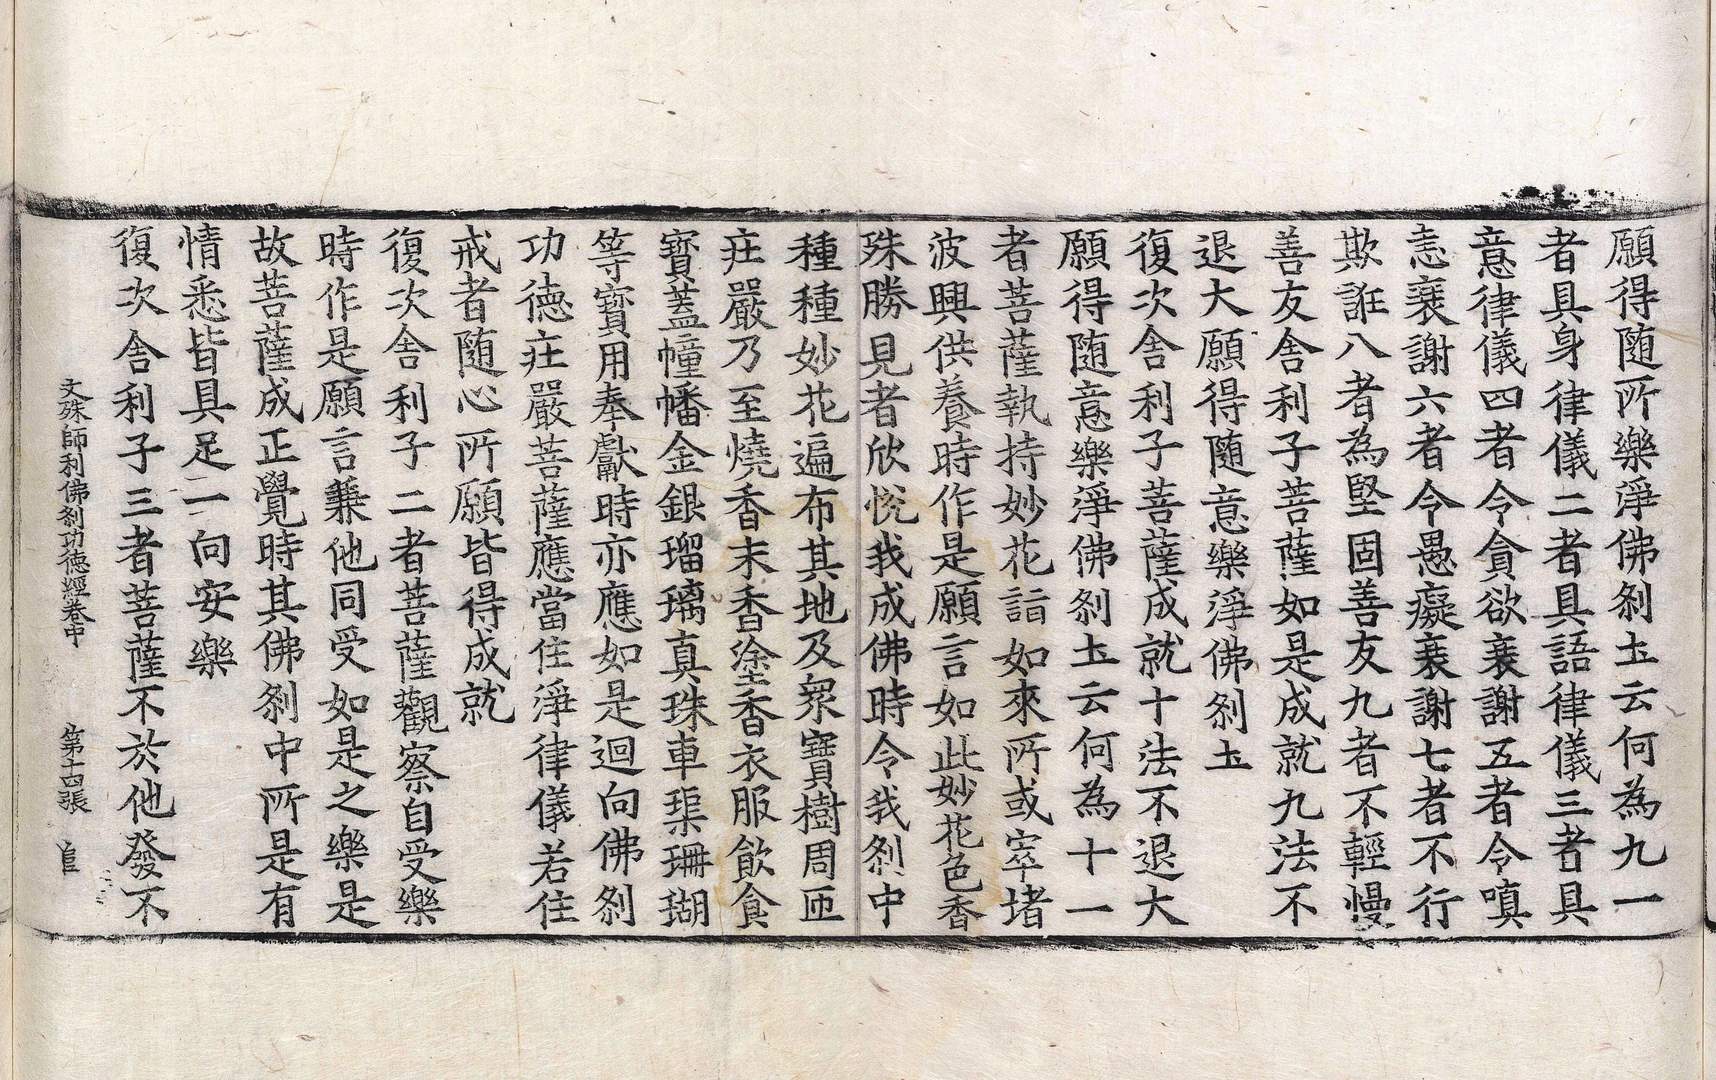 願得随所樂淨佛刹𡈽云何為九一
者具身律儀二者具語律儀三者具
意律儀四者令貪欲衰謝五者令嗔
恚衰謝六者令愚癡衰謝七者不行
欺誑八者為堅固善友九者不輕慢
善友舎利子菩薩如是成就九法不
退大願得随意樂淨佛刹𡈽
復次舎利子菩薩成就十法不退大
願得随意樂淨佛刹𡈽云何為十一
者菩薩執持妙花詣如來所或窣堵
波興供養時作是願言如此妙花色香
殊勝見者欣悅我成佛時令我刹中
種種妙花遍布其地及眾寶樹周匝
莊嚴乃至燒香末香塗香衣服飲食
寶蓋幢幡金銀瑠璃真珠車璖珊瑚
等寶用奉獻時亦應如是迴向佛刹
功德莊嚴菩薩應當住淨律儀若住
戒者随心所願皆得成就
復次舎利子二者菩薩觀察自受樂
時作是願言兼他同受如是之樂是
故菩薩成正覺時其佛刹中所是有
情悉皆具足一向安樂
復次舎利子三者菩薩不於他發不
文殊師利佛刹功德經卷中 第十四張